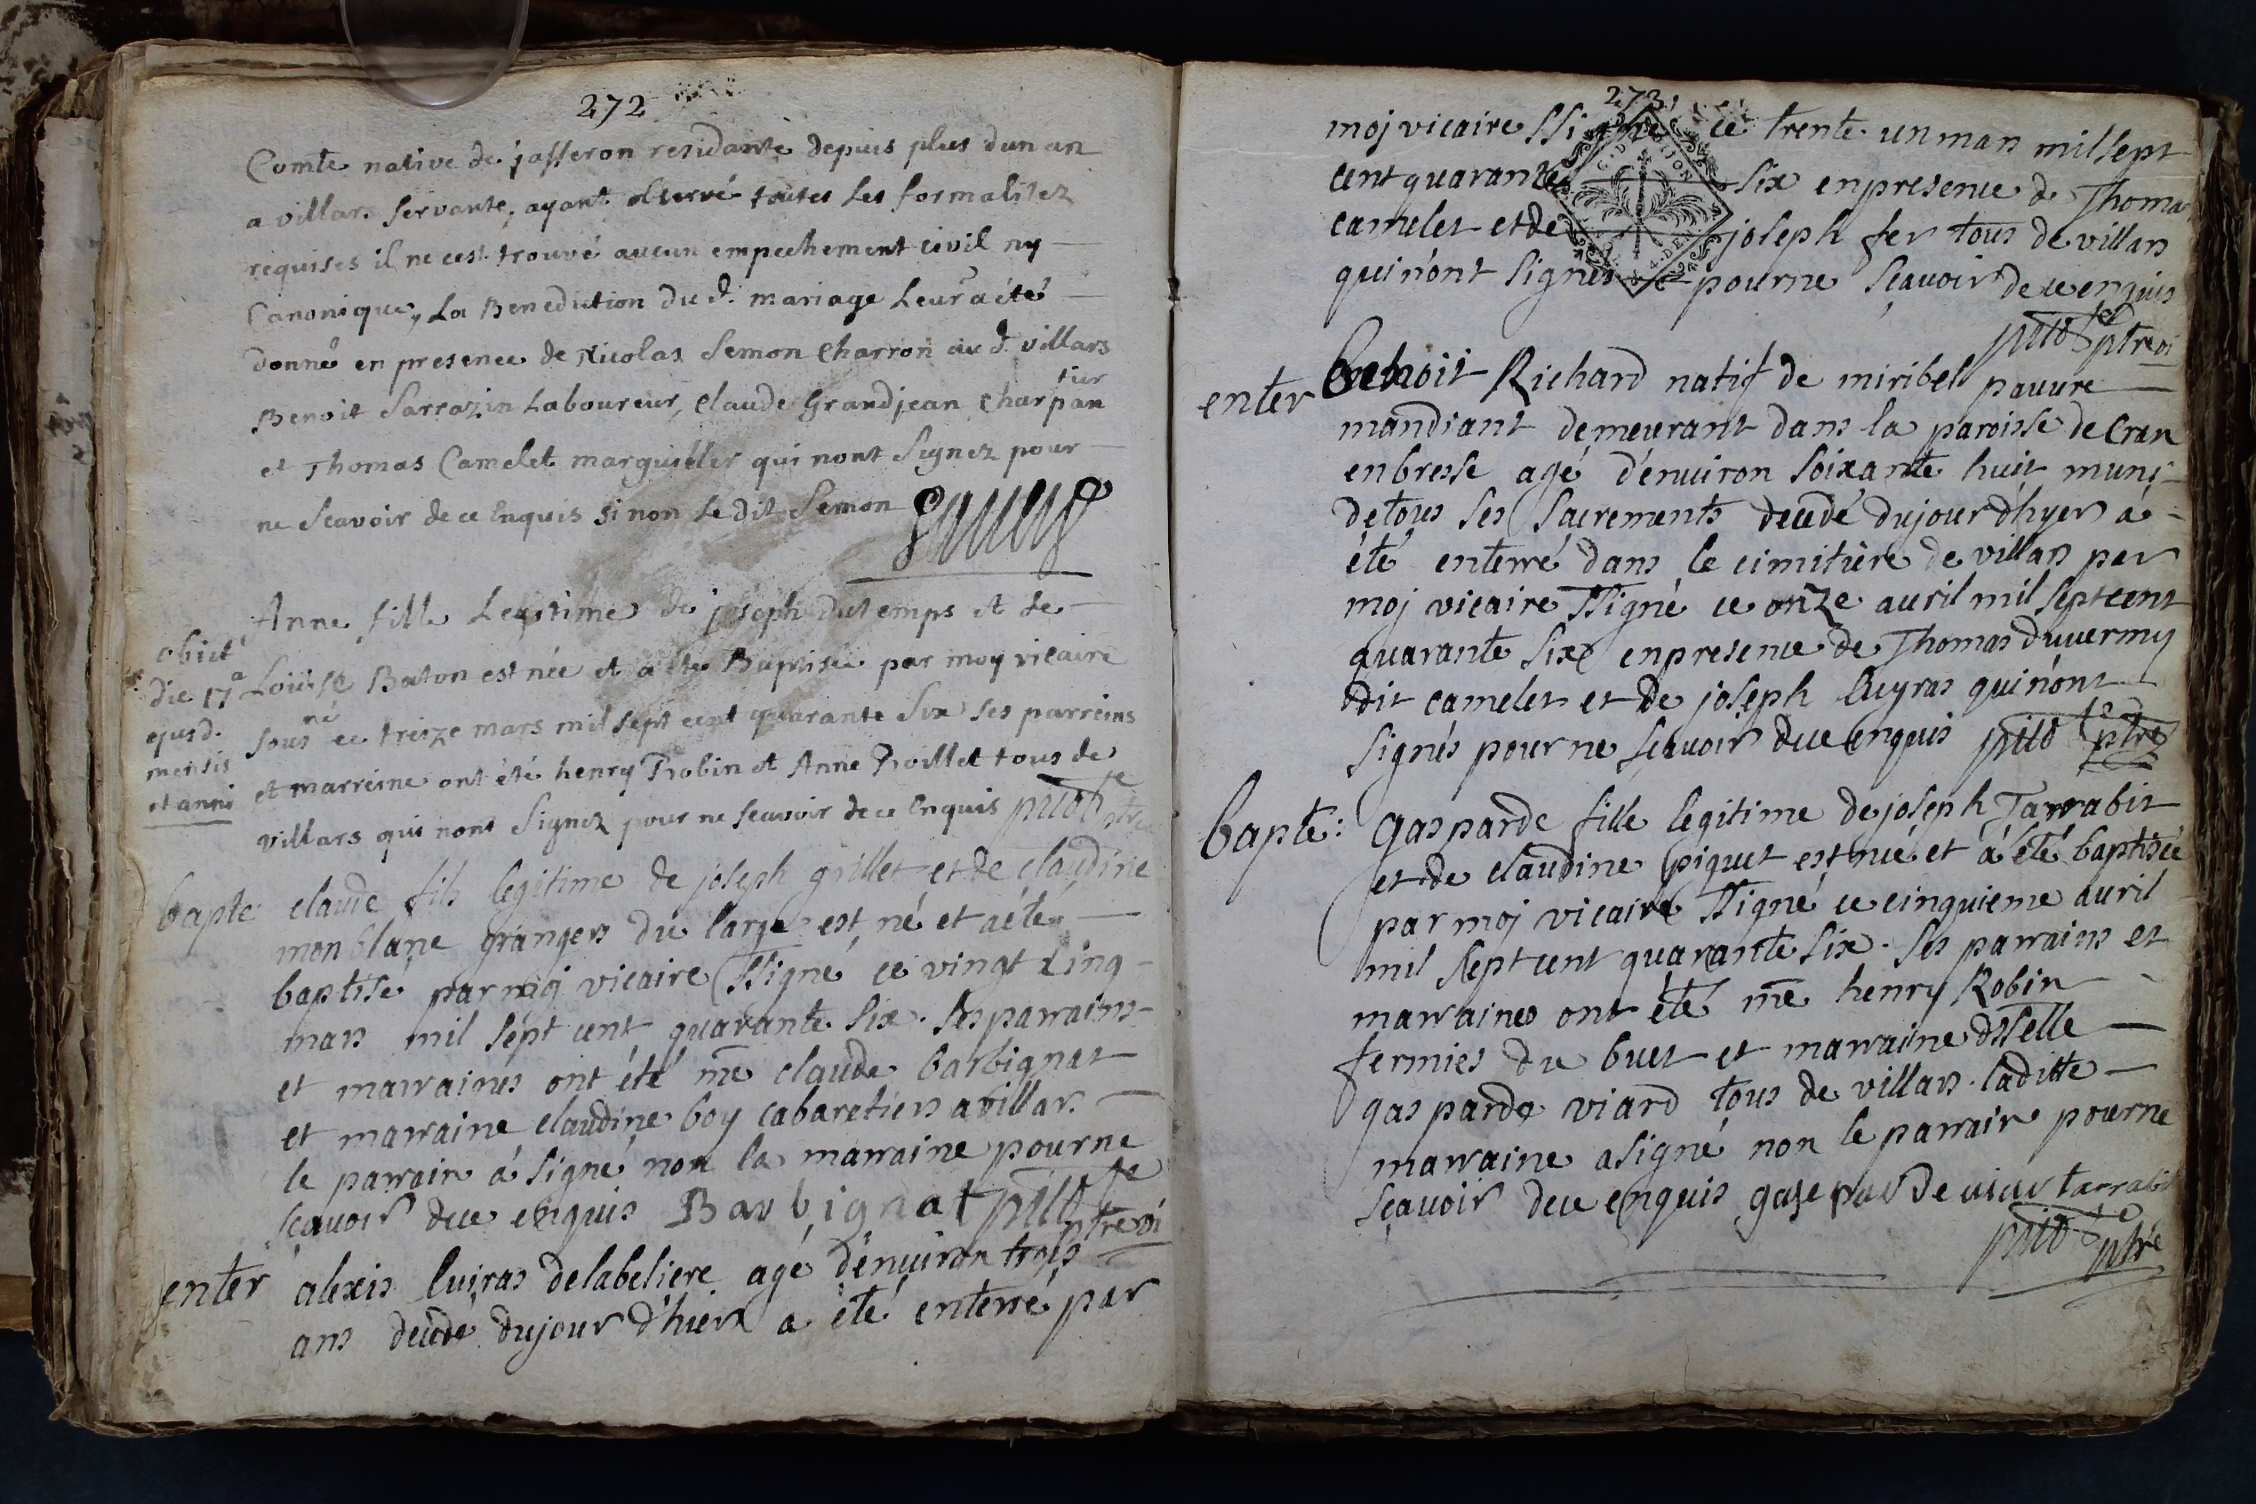 272
Comte native de jasseron residante depuis plus dun an
a villars servante, ayant observé toutes les formalitez
requises il ne cest trouvé aucun empechement civil ny
Canonique, La Benediction du d. mariage Leur a été
donné en presence de Nicolas Semon Charron au d. villars
Benoit Sarrazin Laboureur, Claude Grandjean Charpantier
et Thomas Camelet marguillier qui nont Signez pour
ne Scavoir de ce Enquis si non le dit Semon
Anne fille Legitime de joseph dutemps et de
Loüise Baton est née et a été Baptisée par moy vicaire
sousné ce treize mars mil sept cent quarante Six ses parreins
et marreine ont été henry Robin et Anne Roillet tous de
villars qui nont Signez pour ne scavoir de ce Enquis
obiit
die 17a
ejusd.
mensis
et anni
bapte: claude fils legitime de joseph grillet et de claudine
monblanc grangers du large est né et a été
baptisé par moj vicaire ssigné ce vingt cinq
mars mil sept cent quarante six. ses parrains
et marraines ont été me claude barbignat
et marraine claudine boy cabaretiers a villars.
le parrain á signé non la marraine pour ne
sçavoir dece enquis Barbignat
enter alexis luiras delabeliere agé d'environ trois
ans decedé dujour d'hier a été enterré par
273
moj vicaire ssigné ce trente un mars mil sept
cent quarante six en presence de Thomas
camelet et de joseph fer tous de villars
qui n'ont signés pour ne sçavoir de ce enquis
enter benoit Richard natif de miribel pauvre
mandiant demeurant dans la paroisse de Cran
en bresse agé d'environ soixante huit muni
de tous ses sacrements decedé dujour d'hyer á
été enterré dans le cimitière de villars par
moj vicaire ssigné ce onze avril mil sept cent
quarante six en presence de Thomas duvermy
dit camelet et de joseph luyras qui n'ont
signés pour ne sçavoir dece enquis
bapte: gasparde fille legitime de joseph Tarrabit
et de claudine piquet est née et á été baptisée
par moj vicaire ssigné ce cinquieme avril
mil sept cent quarante six. ses parrains et
marraines ont été me henry Robin
fermies du buet et marraine dsselle
gasparde viard tous de villars. laditte
marraine a signé non le parrain pour ne
sçavoir dece enquis gaspar de viar tarrabit